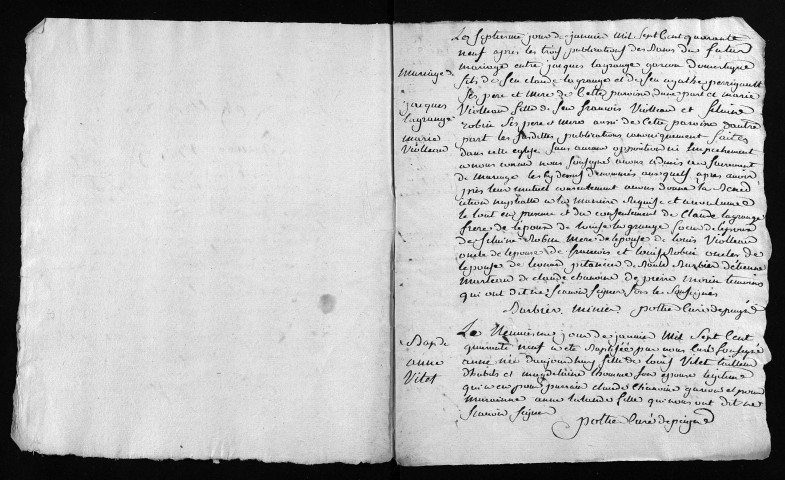 Le septieme jour de janvier mil sept cent quarante
neuf apres les trois publications des bans du futur
mariage entre jacques lagrange garcon domestique
fils de feu claude lagrange et de feu agathe perrigault
ses pere et mere de cette paroisse d'une part et marie
Violleau fille de feu francois Violleau et
robin ses pere et mere aussi de cette paroisse d'autre
part les publications canoniquement faites
dans cette eglise sans aucune opposition ni empechement
a nous connu nous soussigné avons admis au sacrement
de mariage les cy dessus denommés auxquels apres avoir
pris leur mutuel consentement avons donné la bened
iction nuptialle a la maniere requise et accoutumee
le tout en presence et du consentement de Claude lagrange
frere de lepoux de louise lagrange soeur de lepoux
de robin mere de lepouse de louis Violleau
oncle de lepouse de francois et louis Robin oncles de
lepouse de de Barbier d'etienne
de claude chauvin de pierre minier temoins
qui ont dit ne scavoir signer fors les soussignés
Barbier minier curé de
mariage de
jacques
lagrange
marie
Violleau
Le neuvieme jour de janvier mil sept cent
quarante neuf a eté baptisée par nous curé soussigné
anne née d'aujourdhuy fille de louis Vilet tailleur
d'habits et magdelaine lhomme son epouse legitime
qui a eu pour parrain claude Chauvin garcon et pour
marainne anne fille qui nous ont dit ne
scavoir signer
curé de
Bap. de
anne
Vilet